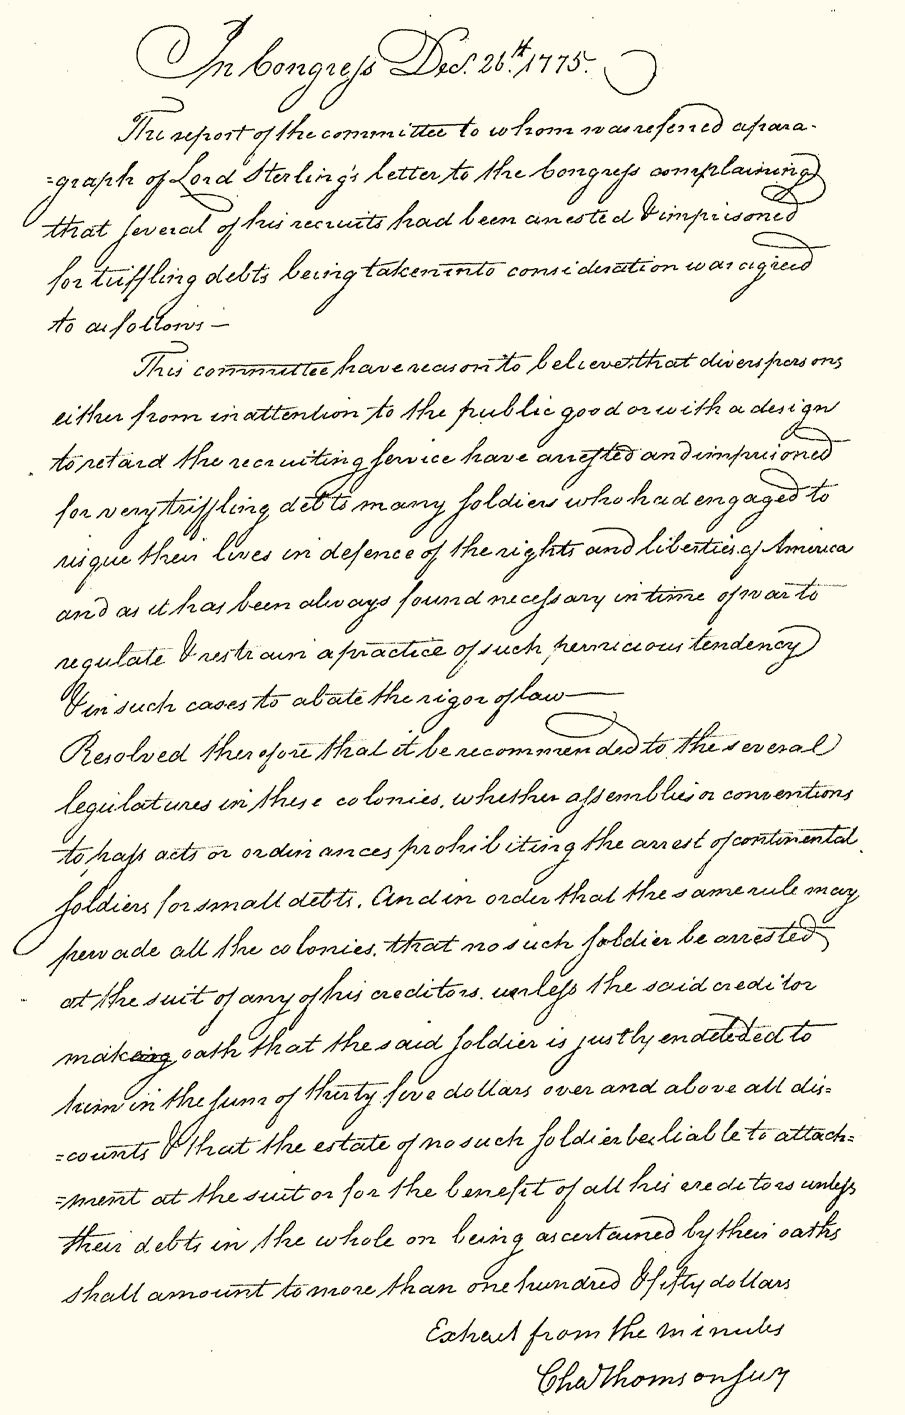 In Congress Dec.r 26.th 1775.
The report of the committee to whom was referred a para-
=graph of Lord Sterling's letter to the Congress complaining
that several of his recruits had been arrested & imprisoned
for triffling debts being taken into consideration was agreed
to as follows —
This committee have reason to believe that divers persons
either from inattention to the public good or with a design
to retard the recruiting service have arrested and imprisoned
for very triffling debts many soldiers who had engaged to
risque their lives in defence of the rights and liberties of America
and as it has been always found necessary in time of war to
regulate & restrain a practice of such pernicious tendency
& in such cases to abate the rigor of law —
Resolved therefore that it be recommended to the several
legislatures in these colonies, whether assemblies or conventions
to pass acts or ordinances prohibiting the arrest of continental
soldiers for small debts. And in order that the same rule may
pervade all the colonies, that no such soldier be arrested
at the suit of any of his creditors, unless the said creditor
making oath that the said soldier is justly endebted to
him in the sum of thirty five dollars over and above all dis=
=counts & that the estate of no such soldier be liable to attach=
=ment at the suit or for the benefit of all his creditors unless
their debts in the whole on being ascertained by their oaths
shall amount to more than one hundred & fifty dollars
Extract from the minutes
Cha.s Thomson Secy